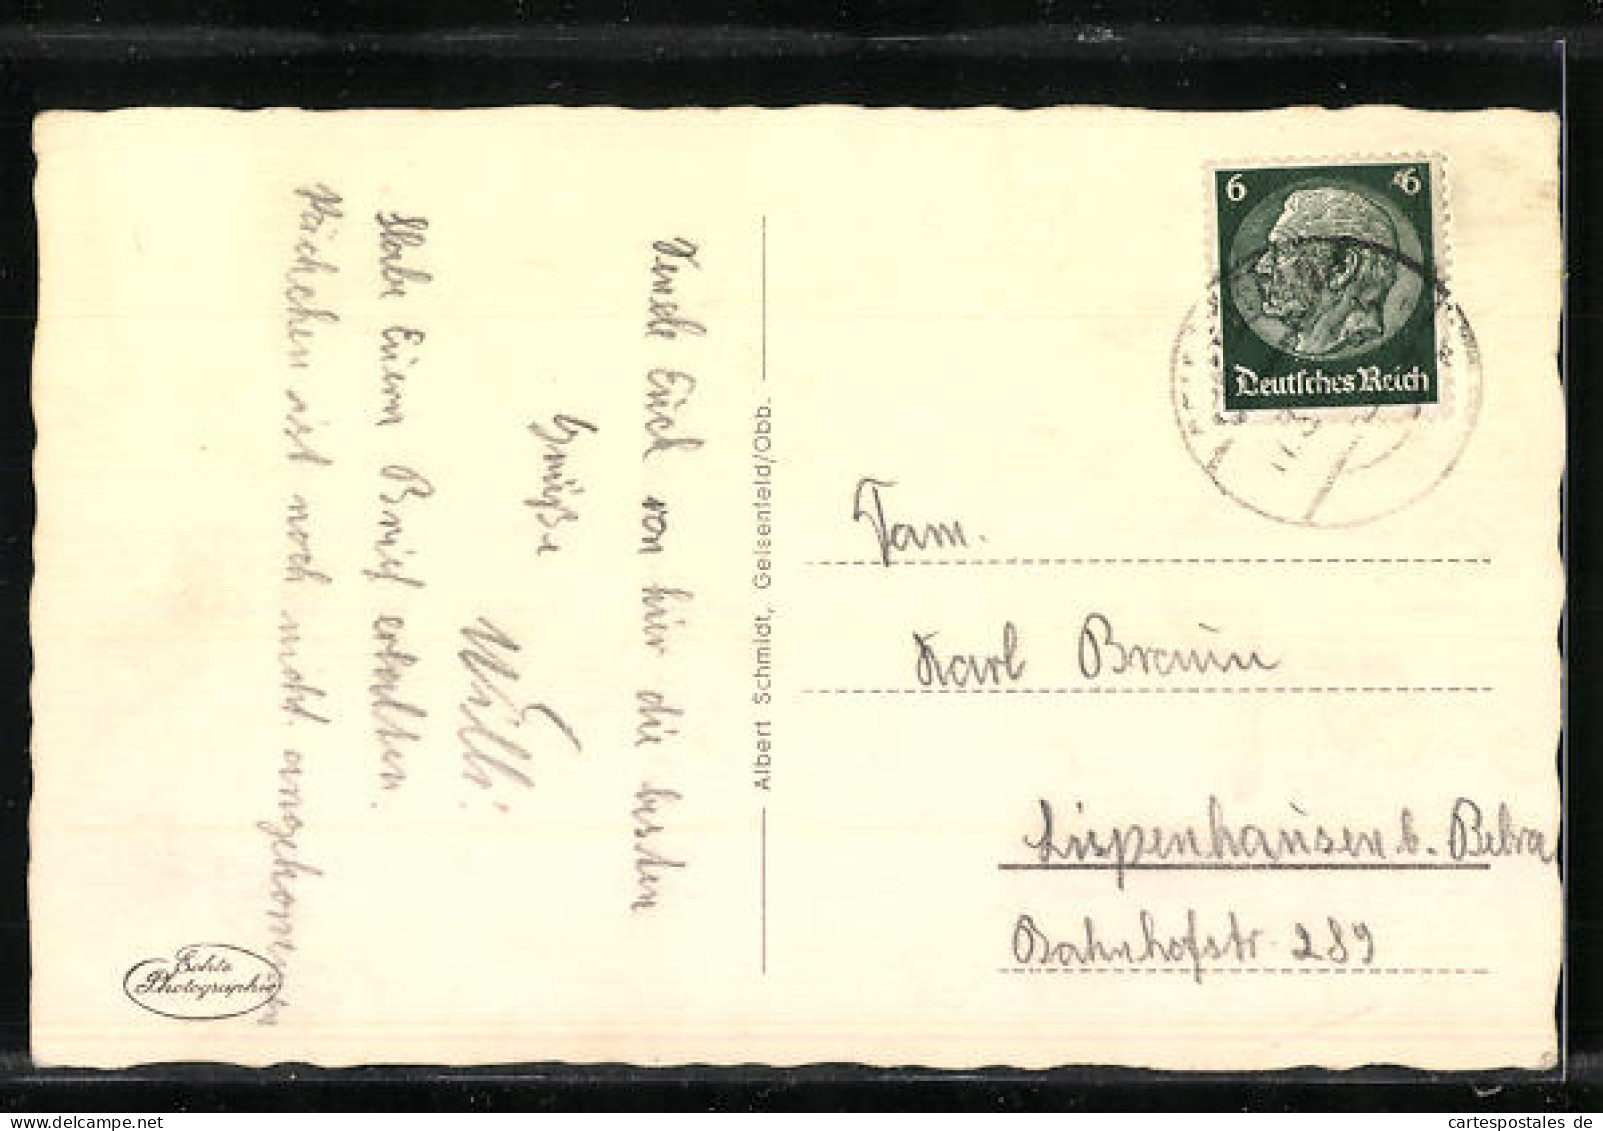 Sende Euch von hier die besten
Grüße
Willi.
Habe Euern Brief erhalten.
Päckchen ist noch nicht angekommen
Echte
Photographie
Albert Schmidt, Geisenfeld/Obb.
6 6
Deutsches Reich
Fam.
Karl Braun
Lispenhausen b. Bebra
Bahnhofstr. 289
www.cartespostales.de